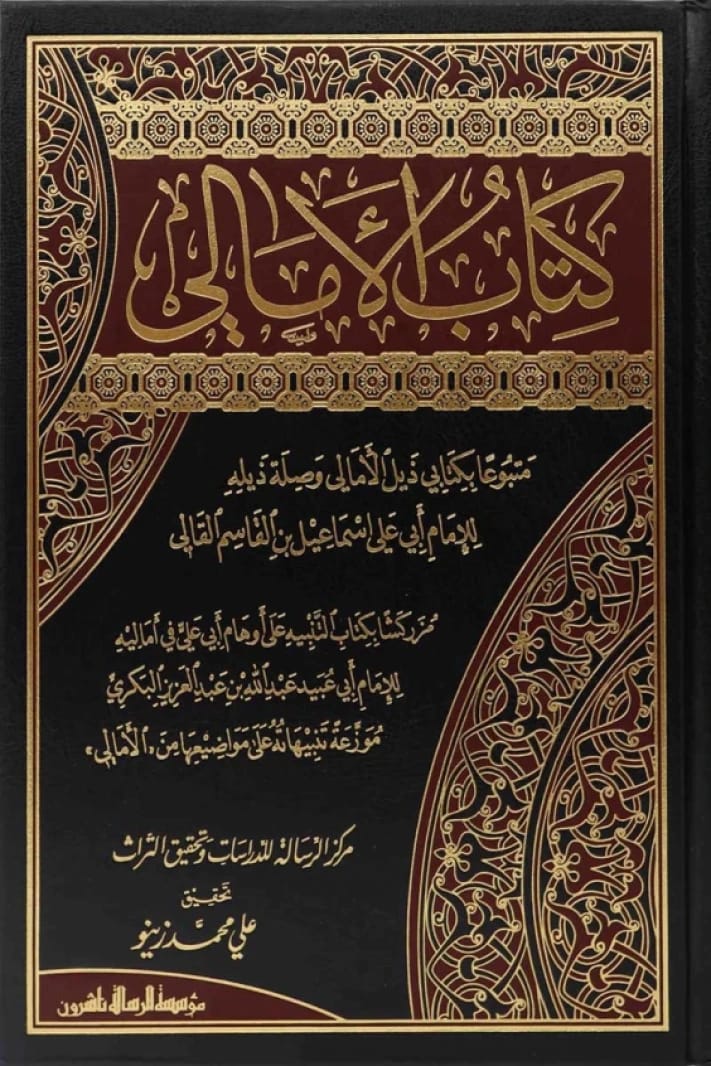 كِتَابُ الأَمَالِي
مَتبُوعًا بِكِتَابَي ذَيلِ الأَمَالِي وَصِلَة ذَيلِهِ
لِلإِمَامِ أَبِي عَلي إسْمَاعِيْل بنِ القَاسِم القَالِي
مُزَركَشًا بِكتَابِ التَّنْبِيهِ عَلى أوهَام أبي عَليٍّ في أمَاليْهِ
لِلإمَام أبي عُبَيد عَبْدِ اللهِ بْن عَبْدِ العَزِيزِ البَكريِّ
مُوَزَّعَةً تَنبِيْهَاتُهُ عَلَى مَوَاضِيْعِهَا مِنَ «الأَمَالِي»
مركز الرسالة للدراسات وتحقيق التراث
تحقيق
علي محمَّد زينو
مؤسسة الرسالة ناشرون